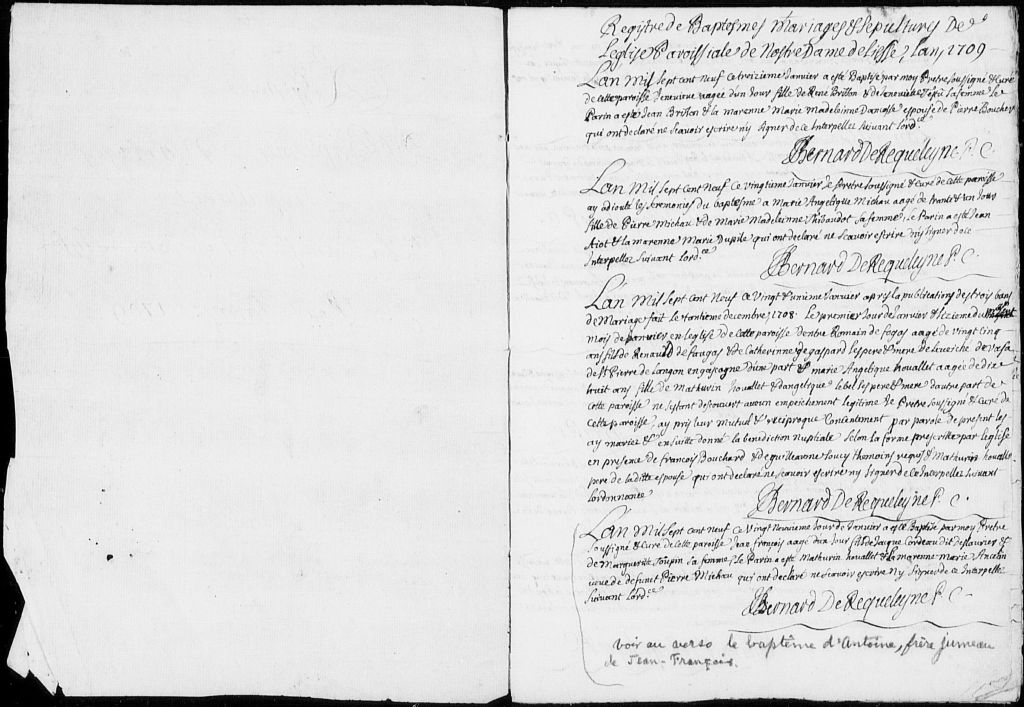 Registre de Baptesmes Mariages & sepultures De
Leglise Paroissiale de Nostre Dame de Liesse, Lan, 1709
Lan Mil Sept cent neuf ce troizieme Janvier a esté Baptisé par moy Pretre soussigné & Curé
de cette paroisse Genevieve aagée d'un Jour fille de René Brillon & de Genevieve sa femme Le
Parin a esté Jean Brillon & la marenne Marie Madeleinne espouse de Pierre Boucher
qui ont declaré ne scavoir escrire ny signer de ce Interpellez suivant lord.ce
Bernard De Requeleyne P. C.
Lan Mil Sept cent Neuf Ce vingtieme Janvier Je Pretre soussigné & Curé de Cette paroisse
ay adiouté les seremonies du baptesme a Marie Angelique Michau aagé de trante & un Jour
fille de Pierre Michau & de Marie Madeleinne Thibaudot sa femme, Le Parin a esté Jean
& la marenne Marie qui ont declaré ne scavoir escrire ny signer de ce
Interpellez suivant lord.ce
Bernard De Requeleyne P. C.
L'an Mil Sept cent Neuf Ce Vingt & unieme Janvier apres la publications des trois bans
de Mariage fait le trantieme decembre, 1708. Le premier Jour de Janvier & sezieme du
mois de Janvier en Leglise de Cette paroisse d'entre Romain de fogas aagé de vingt cinq
ans fils de Renauld de faugas & de Catherinne de gaspard ses pere & mere de
de St Pierre de Langon en gascogne d'une part & marie Angelique houallet aagée de dix
huit ans fille de Mathurin houallet & d'angelique Lebel ses pere & mere dautre part de
cette paroisse ne sestant descouvert aucun empeichement legitime Je Pretre soussigné & Curé de
Cette paroisse, ay pris leur mutuel & reciproque Consentement par parole de present les
ay mariez & ensuitte donné la benediction nuptiale selon la forme prescritte par leglise
en presence de francois Bouchard & de guilleaume Soucy themoins requis & Mathurin houallet
pere de laditte espouse qui ont declaré ne scavoir escrire ny signer de Ce Interpellez suivant
lordonnance
Bernard De Requeleyne P. C.
Lan Mil Sept cent neuf Ce Vingt Neuvieme Jour de Janvier a esté Baptisé par moy Pretre
soussigné & Curé de Cette paroisse Jean françois aagé d'un Jour fils de Jacque Cordeau dit deslaurier &
de Margueritte Toupin sa femme, Le Parin a esté Mathurin houallet & la marenne Marie
veuve de defunct Pierre Michau qui ont declaré ne scavoir escrire Ny signer de ce Interpellez
suivant lord.ce
Bernard De Requeleyne P. C.
Voir au verso le baptême d'Antoine, frère jumeau
de Jean-François.